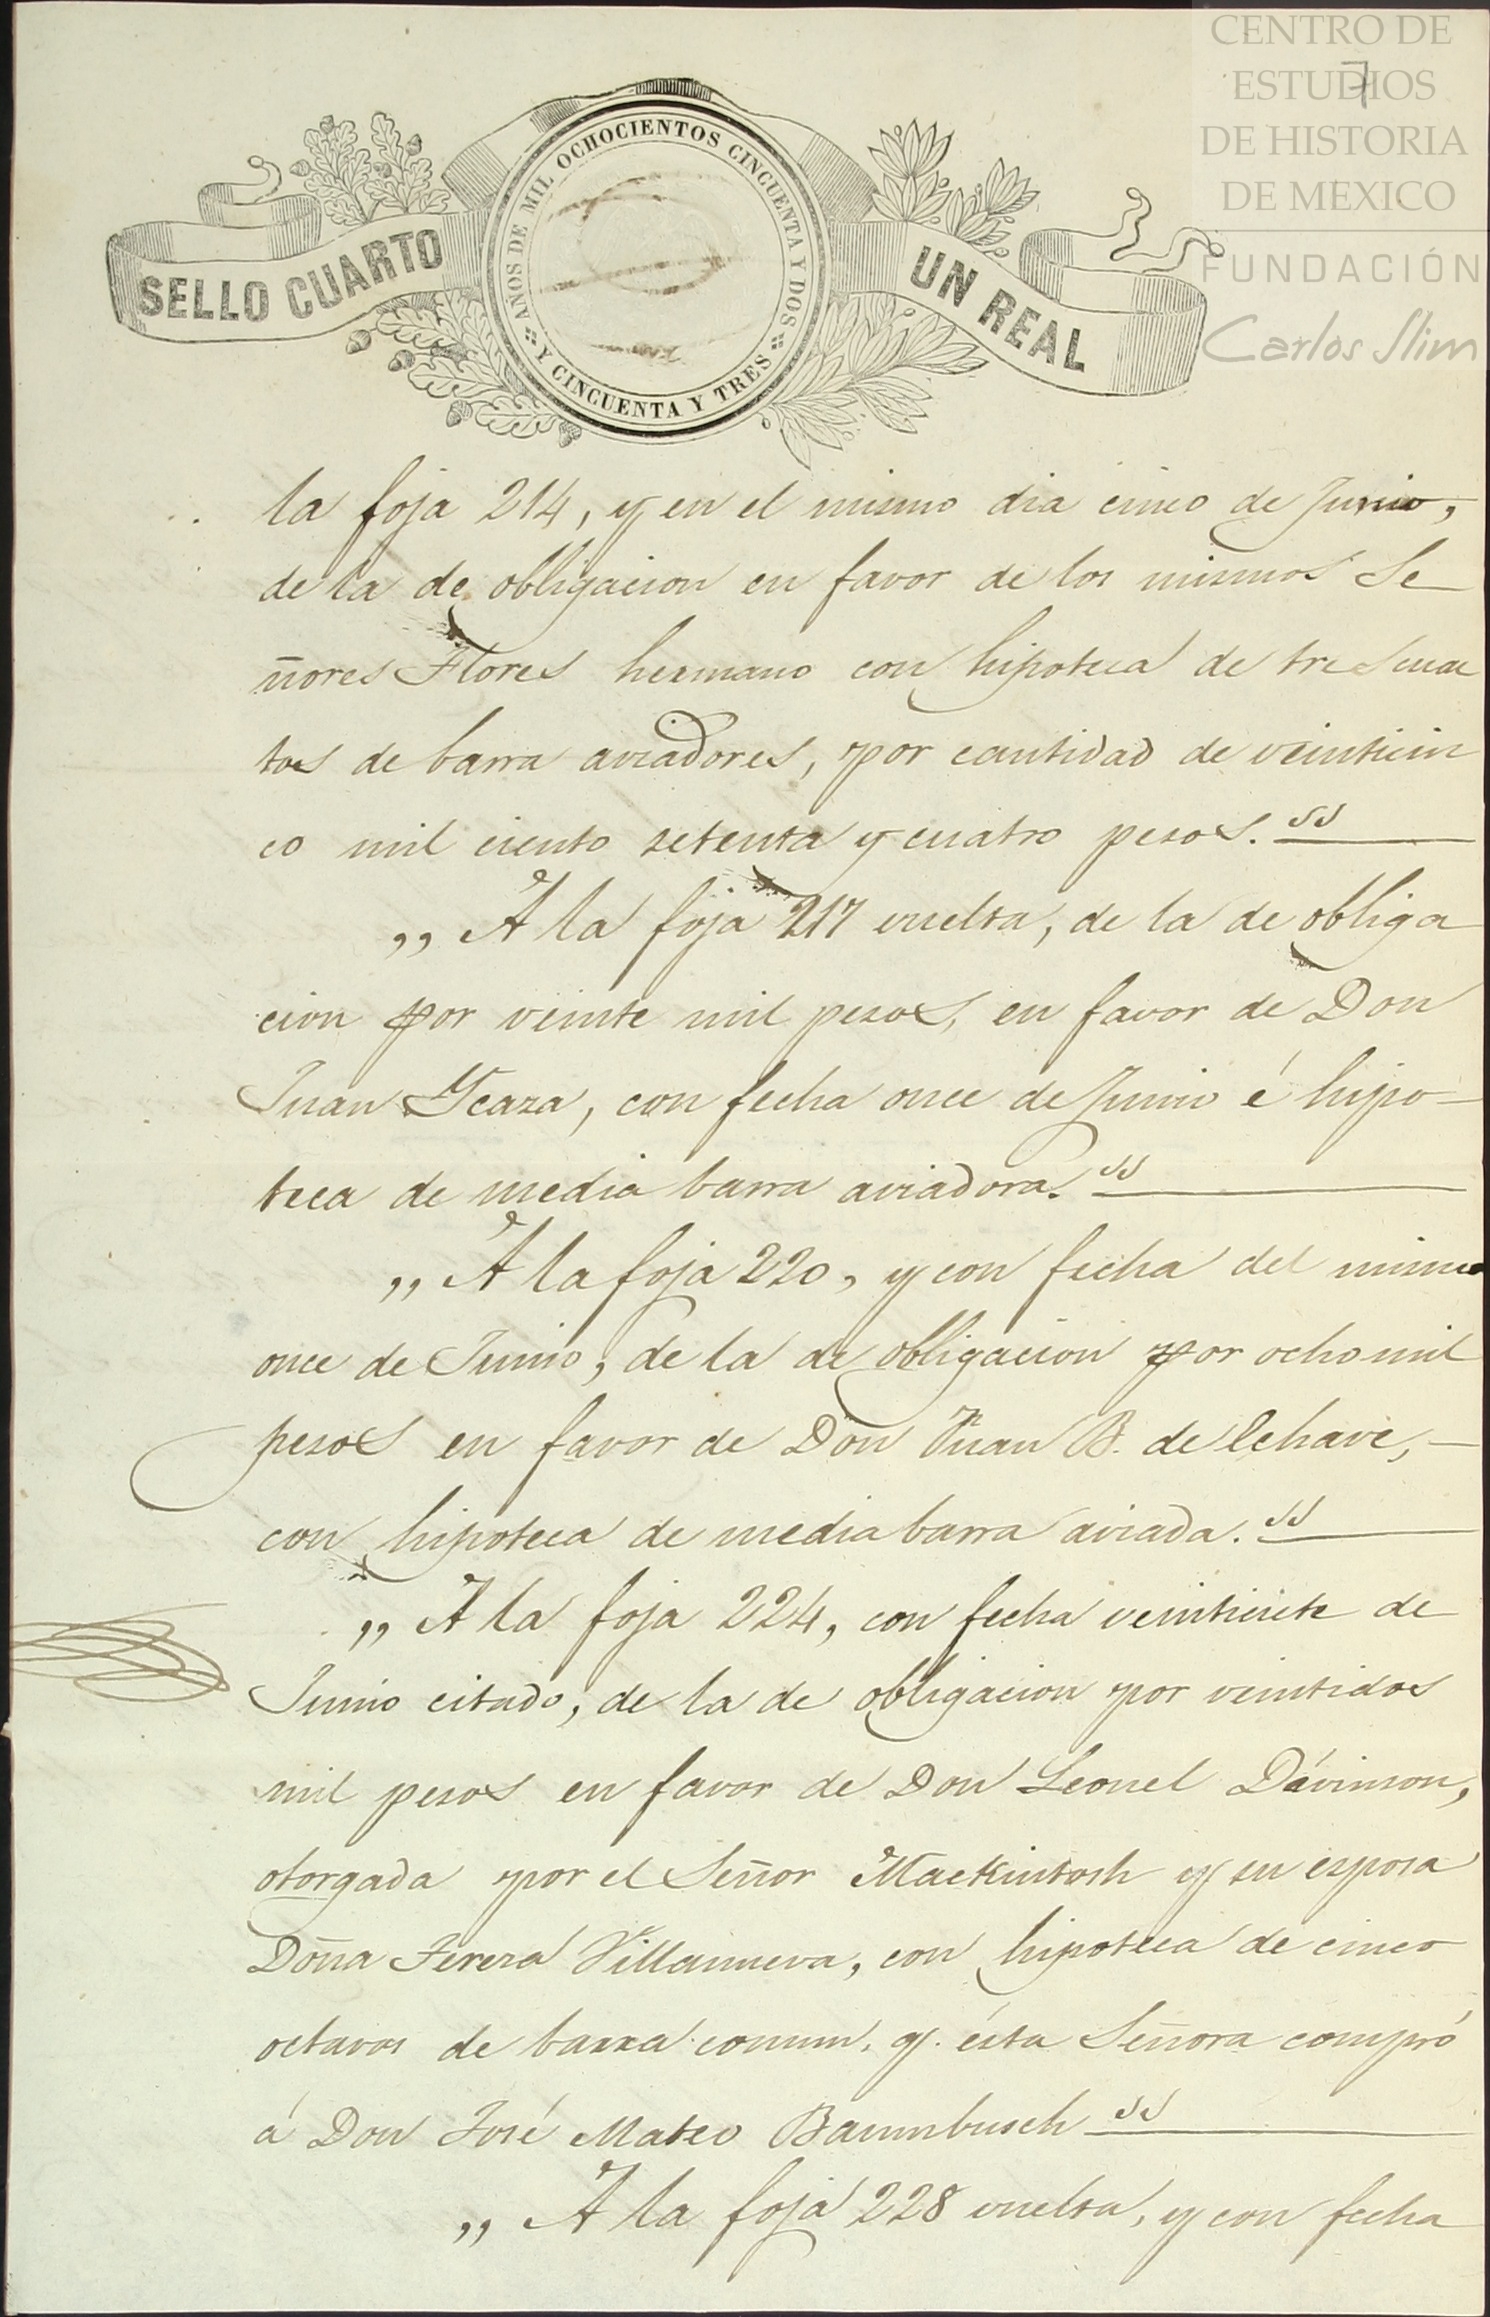 CENTRO DE
ESTUDIOS
DE HISTORIA
DE MEXICO
FUNDACIÓN
Carlos Slim
7
SELLO CUARTO
AÑOS DE MIL OCHOCIENTOS CINCUENTA Y DOS
Y CINCUENTA Y TRES
UN REAL
la foja 214, y en el mismo dia cinco de Junio,
de la de obligacion en favor de los mismos Se
ñores Flores hermano con hipoteca de tres cuar
tos de barra aviadores, por cantidad de veinticin
co mil ciento setenta y cuatro pesos.
,, A la foja 217 vuelta, de la de obliga
cion por veinte mil pesos, en favor de Don
Juan Ycaza, con fecha once de Junio é hipo-
teca de media barra aviadora.
,, A la foja 220, y con fecha del mismo
once de Junio, de la de obligacion por ocho mil
pesos en favor de Don Juan B. de Echave,
con hipoteca de media barra aviada.
,, A la foja 224, con fecha veintisiete de
Junio citado, de la de obligacion por veintidos
mil pesos en favor de Don Leonel Dávinson,
otorgada por el Señor Mackintosh y su esposa
Doña Teresa Villanueva, con hipoteca de cinco
octavos de barra comun, q. ésta Señora compró
á Don José Mateo Baumbusch
,, A la foja 228 vuelta, y con fecha